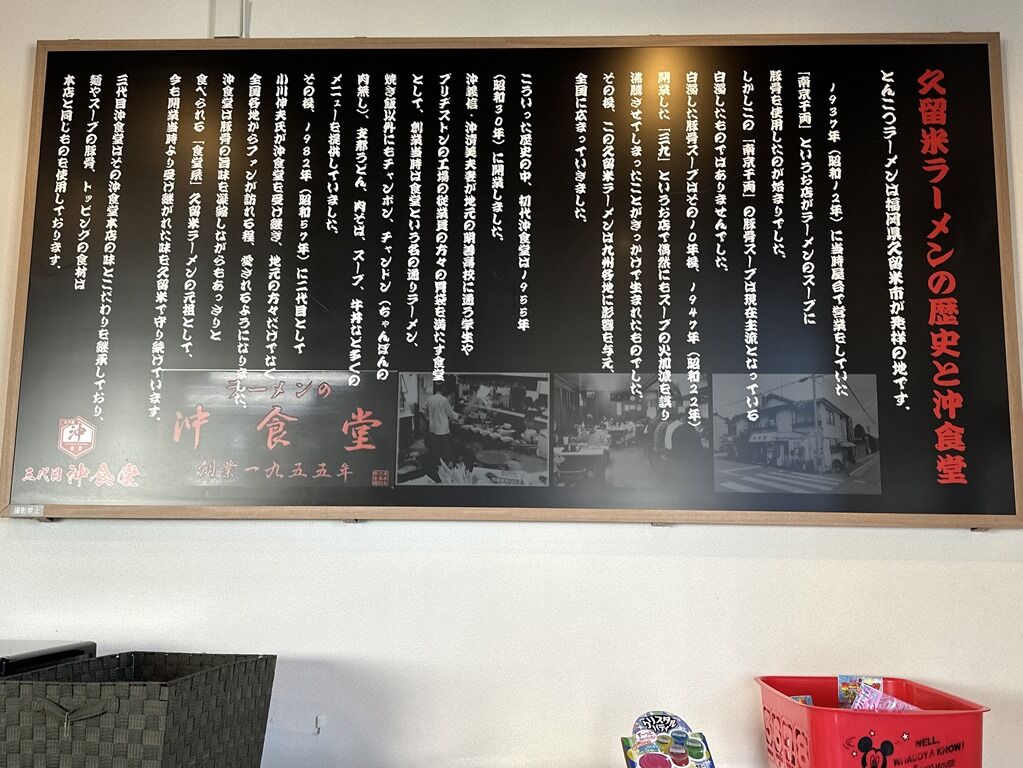 久留米ラーメンの歴史と沖食堂
とんこつラーメンは福岡県久留米市が発祥の地です。
1937年（昭和12年）に当時屋台で営業をしていた
「南京千両」というお店がラーメンのスープに
豚骨を使用したのが始まりでした。
しかしこの「南京千両」の豚骨スープは現在主流となっている
白濁したものではありませんでした。
白濁した豚骨スープはその10年後、1947年（昭和22年）
開業した「三九」というお店で偶然にもスープの火加減を誤り
沸騰させてしまったことがきっかけで生まれたものでした。
その後、この久留米ラーメンは九州各地に影響を与え、
全国に広まっていきました。
こういった歴史の中、初代沖食堂は1955年
（昭和30年）に開業しました。
沖義信・沖清美夫妻が地元の明善高校に通う学生や
ブリヂストンの工場の従業員の方々の胃袋を満たす食堂
として、創業当時は食堂という名の通りラーメン、
焼き飯以外にもチャンポン、チャンドン（ちゃんぽんの
肉無し）、支那うどん、肉そば、スープ、牛丼など多くの
メニューを提供していました。
その後、1982年（昭和57年）に二代目として
小川伸夫氏が沖食堂を受け継ぎ、地元の方々だけでなく
全国各地からファンが訪れる程、愛されるようになりました。
沖食堂は豚骨の旨味を凝縮しながらもあっさりと
食べられる「食堂系」久留米ラーメンの元祖として、
今も開業当時より受け継がれた味を久留米で守り続けています。
三代目沖食堂はその沖食堂本店の味とこだわりを継承しており、
麺やスープの豚骨、トッピングの食材は
本店と同じものを使用しております。
ラーメンの
沖食堂
創業一九五五年
沖
三代目沖食堂
撮影禁止
クリスタル
WELL,
WHADDYA KNOW!